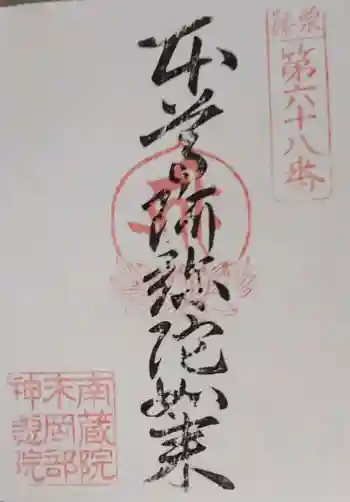 第六十八番
本尊阿弥陀如来
南蔵院
末岡部
神恵院